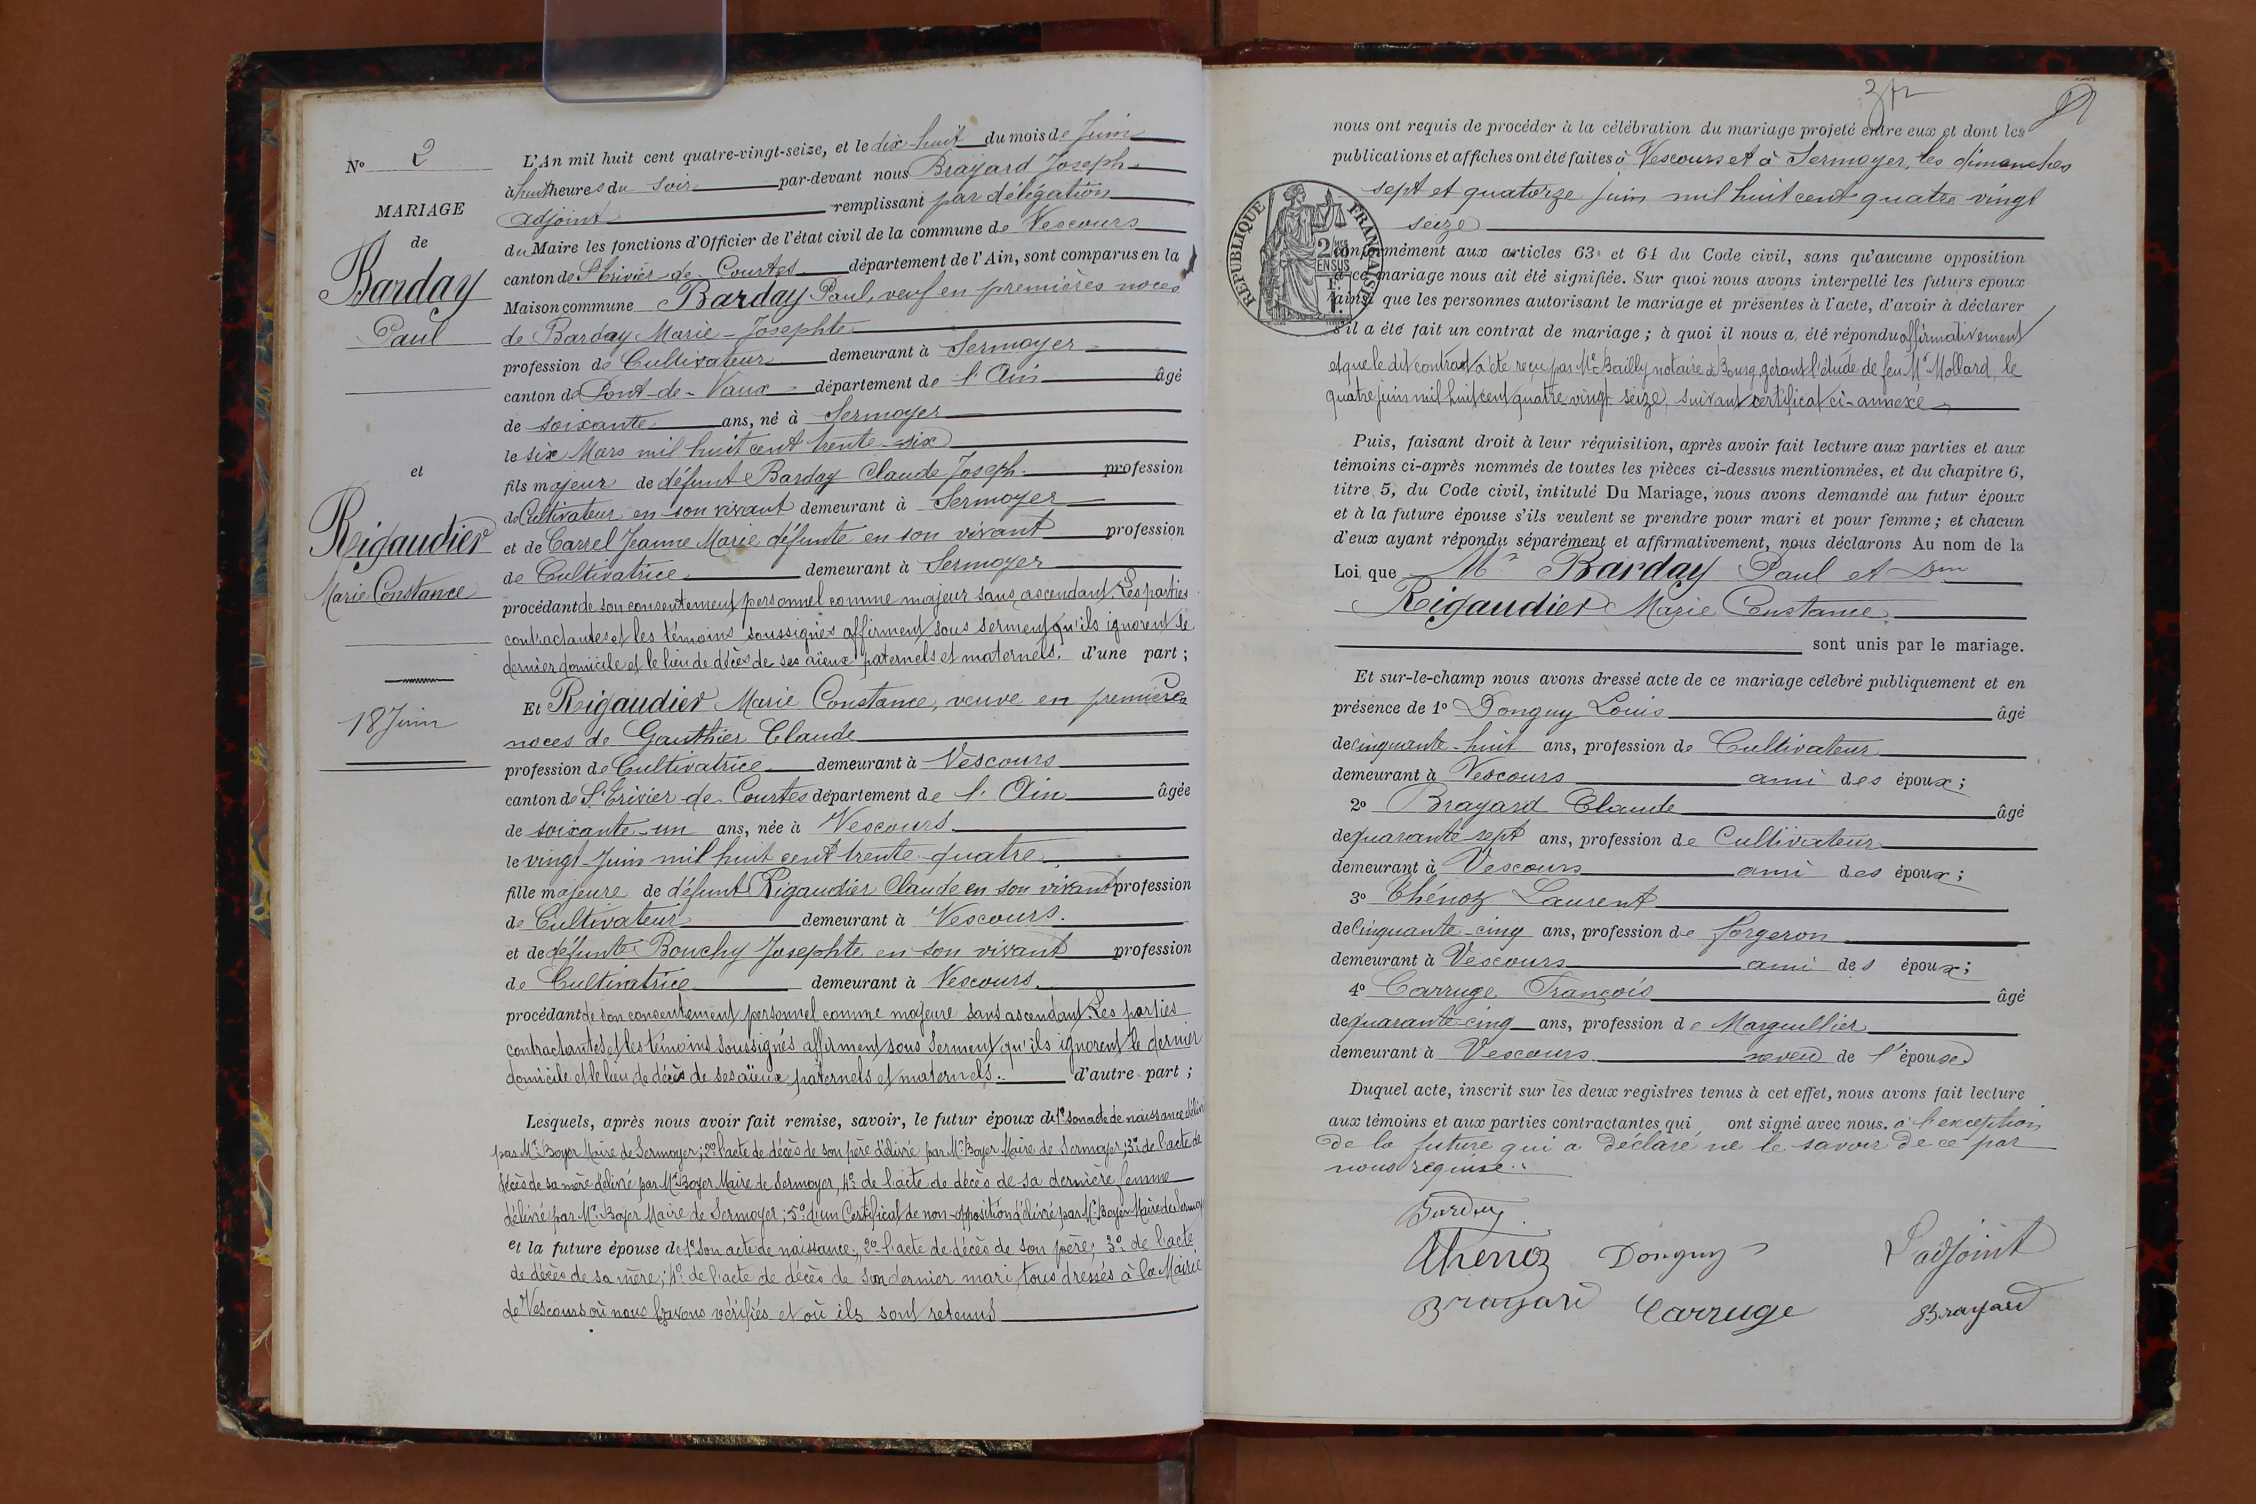 N° 2
MARIAGE
de
Barday
Paul
et
Rigaudier
Marie Constance
18 Juin
L'An mil huit cent quatre-vingt-seize, et le dix-huit du mois de Juin
à huit heures du soir par-devant nous Brayard Joseph
adjoint remplissant par délégation
du Maire les fonctions d'Officier de l'état civil de la commune de Vescours
canton de St Trivier de Courtes département de l'Ain, sont comparus en la
Maison commune Barday Paul, veuf en premières noces
de Barday Marie-Josephte
profession de Cultivateur demeurant à Sermoyer
canton de Pont-de-Vaux département de l'Ain âgé
de soixante ans, né à Sermoyer
le six Mars mil huit cent trente-six
fils majeur de défunt Barday Claude Joseph profession
de Cultivateur en son vivant demeurant à Sermoyer
et de Carrel Jeanne Marie défunte en son vivant profession
de Cultivatrice demeurant à Sermoyer
procédant de son consentement personnel comme majeur sans ascendant. Les parties
contractantes et les témoins soussignés affirment sous serment qu'ils ignorent le
dernier domicile et le lieu de décès de ses aïeux paternels et maternels. d'une part ;
Et Rigaudier Marie Constance, veuve en premières
noces de Gauthier Claude
profession de Cultivatrice demeurant à Vescours
canton de St Trivier de Courtes département de l'Ain âgée
de soixante-un ans, née à Vescours
le vingt Juin mil huit cent trente-quatre
fille majeure de défunt Rigaudier Claude en son vivant profession
de Cultivateur demeurant à Vescours.
et de défunte Bouchy Josephte en son vivant profession
de Cultivatrice demeurant à Vescours.
procédant de son consentement personnel comme majeure sans ascendant. Les parties
contractantes et les témoins soussignés affirment sous serment qu'ils ignorent le dernier
domicile et le lieu de décès de ses aïeux paternels et maternels. d'autre part ;
Lesquels, après nous avoir fait remise, savoir, le futur époux de 1° son acte de naissance délivré
par Mr Boyer Maire de Sermoyer; 2° l'acte de décès de son père délivré par Mr Boyer Maire de Sermoyer; 3° de l'acte de
décès de sa mère délivré par Mr Boyer Maire de Sermoyer, 4° de l'acte de décès de sa dernière femme
délivré par Mr Boyer Maire de Sermoyer; 5° d'un Certificat de non-opposition délivré par Mr Boyer Maire de Sermoyer
et la future épouse de 1° son acte de naissance, 2° l'acte de décès de son père; 3° de l'acte
de décès de sa mère; 4° de l'acte de décès de son dernier mari, tous dressés à la Mairie
de Vescours où nous les avons vérifiés et où ils sont retenus
nous ont requis de procéder à la célébration du mariage projeté entre eux et dont les
publications et affiches ont été faites à Vescours et à Sermoyer, les dimanches
sept et quatorze juin mil huit cent quatre vingt
seize
conformément aux articles 63 et 64 du Code civil, sans qu'aucune opposition
à ce mariage nous ait été signifiée. Sur quoi nous avons interpellé les futurs époux
ainsi que les personnes autorisant le mariage et présentes à l'acte, d'avoir à déclarer
s'il a été fait un contrat de mariage ; à quoi il nous a été répondu affirmativement
et que le dit contrat a été reçu par Me Bailly notaire à Bourg, gérant l'étude de feu Me Mollard, le
quatre juin mil huit cent quatre-vingt-seize, suivant certificat ci-annexé
REPUBLIQUE FRANÇAISE
Puis, faisant droit à leur réquisition, après avoir fait lecture aux parties et aux
témoins ci-après nommés de toutes les pièces ci-dessus mentionnées, et du chapitre 6,
titre 5, du Code civil, intitulé Du Mariage, nous avons demandé au futur époux
et à la future épouse s'ils veulent se prendre pour mari et pour femme ; et chacun
d'eux ayant répondu séparément et affirmativement, nous déclarons Au nom de la
Loi, que Mr Barday Paul et Dme
Rigaudier Marie Constance
sont unis par le mariage.
Et sur-le-champ nous avons dressé acte de ce mariage célébré publiquement et en
présence de 1° Donguy Louis âgé
de cinquante-huit ans, profession de Cultivateur
demeurant à Vescours ami des époux ;
2° Brayard Claude âgé
de quarante-sept ans, profession de Cultivateur
demeurant à Vescours ami des époux ;
3° Thénoz Laurent
de Cinquante-cinq ans, profession de forgeron
demeurant à Vescours ami des époux ;
4° Carruge François âgé
de quarante-cinq ans, profession de Marguillier
demeurant à Vescours neveu de l'épouse
Duquel acte, inscrit sur les deux registres tenus à cet effet, nous avons fait lecture
aux témoins et aux parties contractantes qui ont signé avec nous. à l'exception
de la future qui a déclaré ne le savoir de ce par
nous requise.
Barday
Thenoz Donguy L'adjoint
Brayard Carruge Brayard